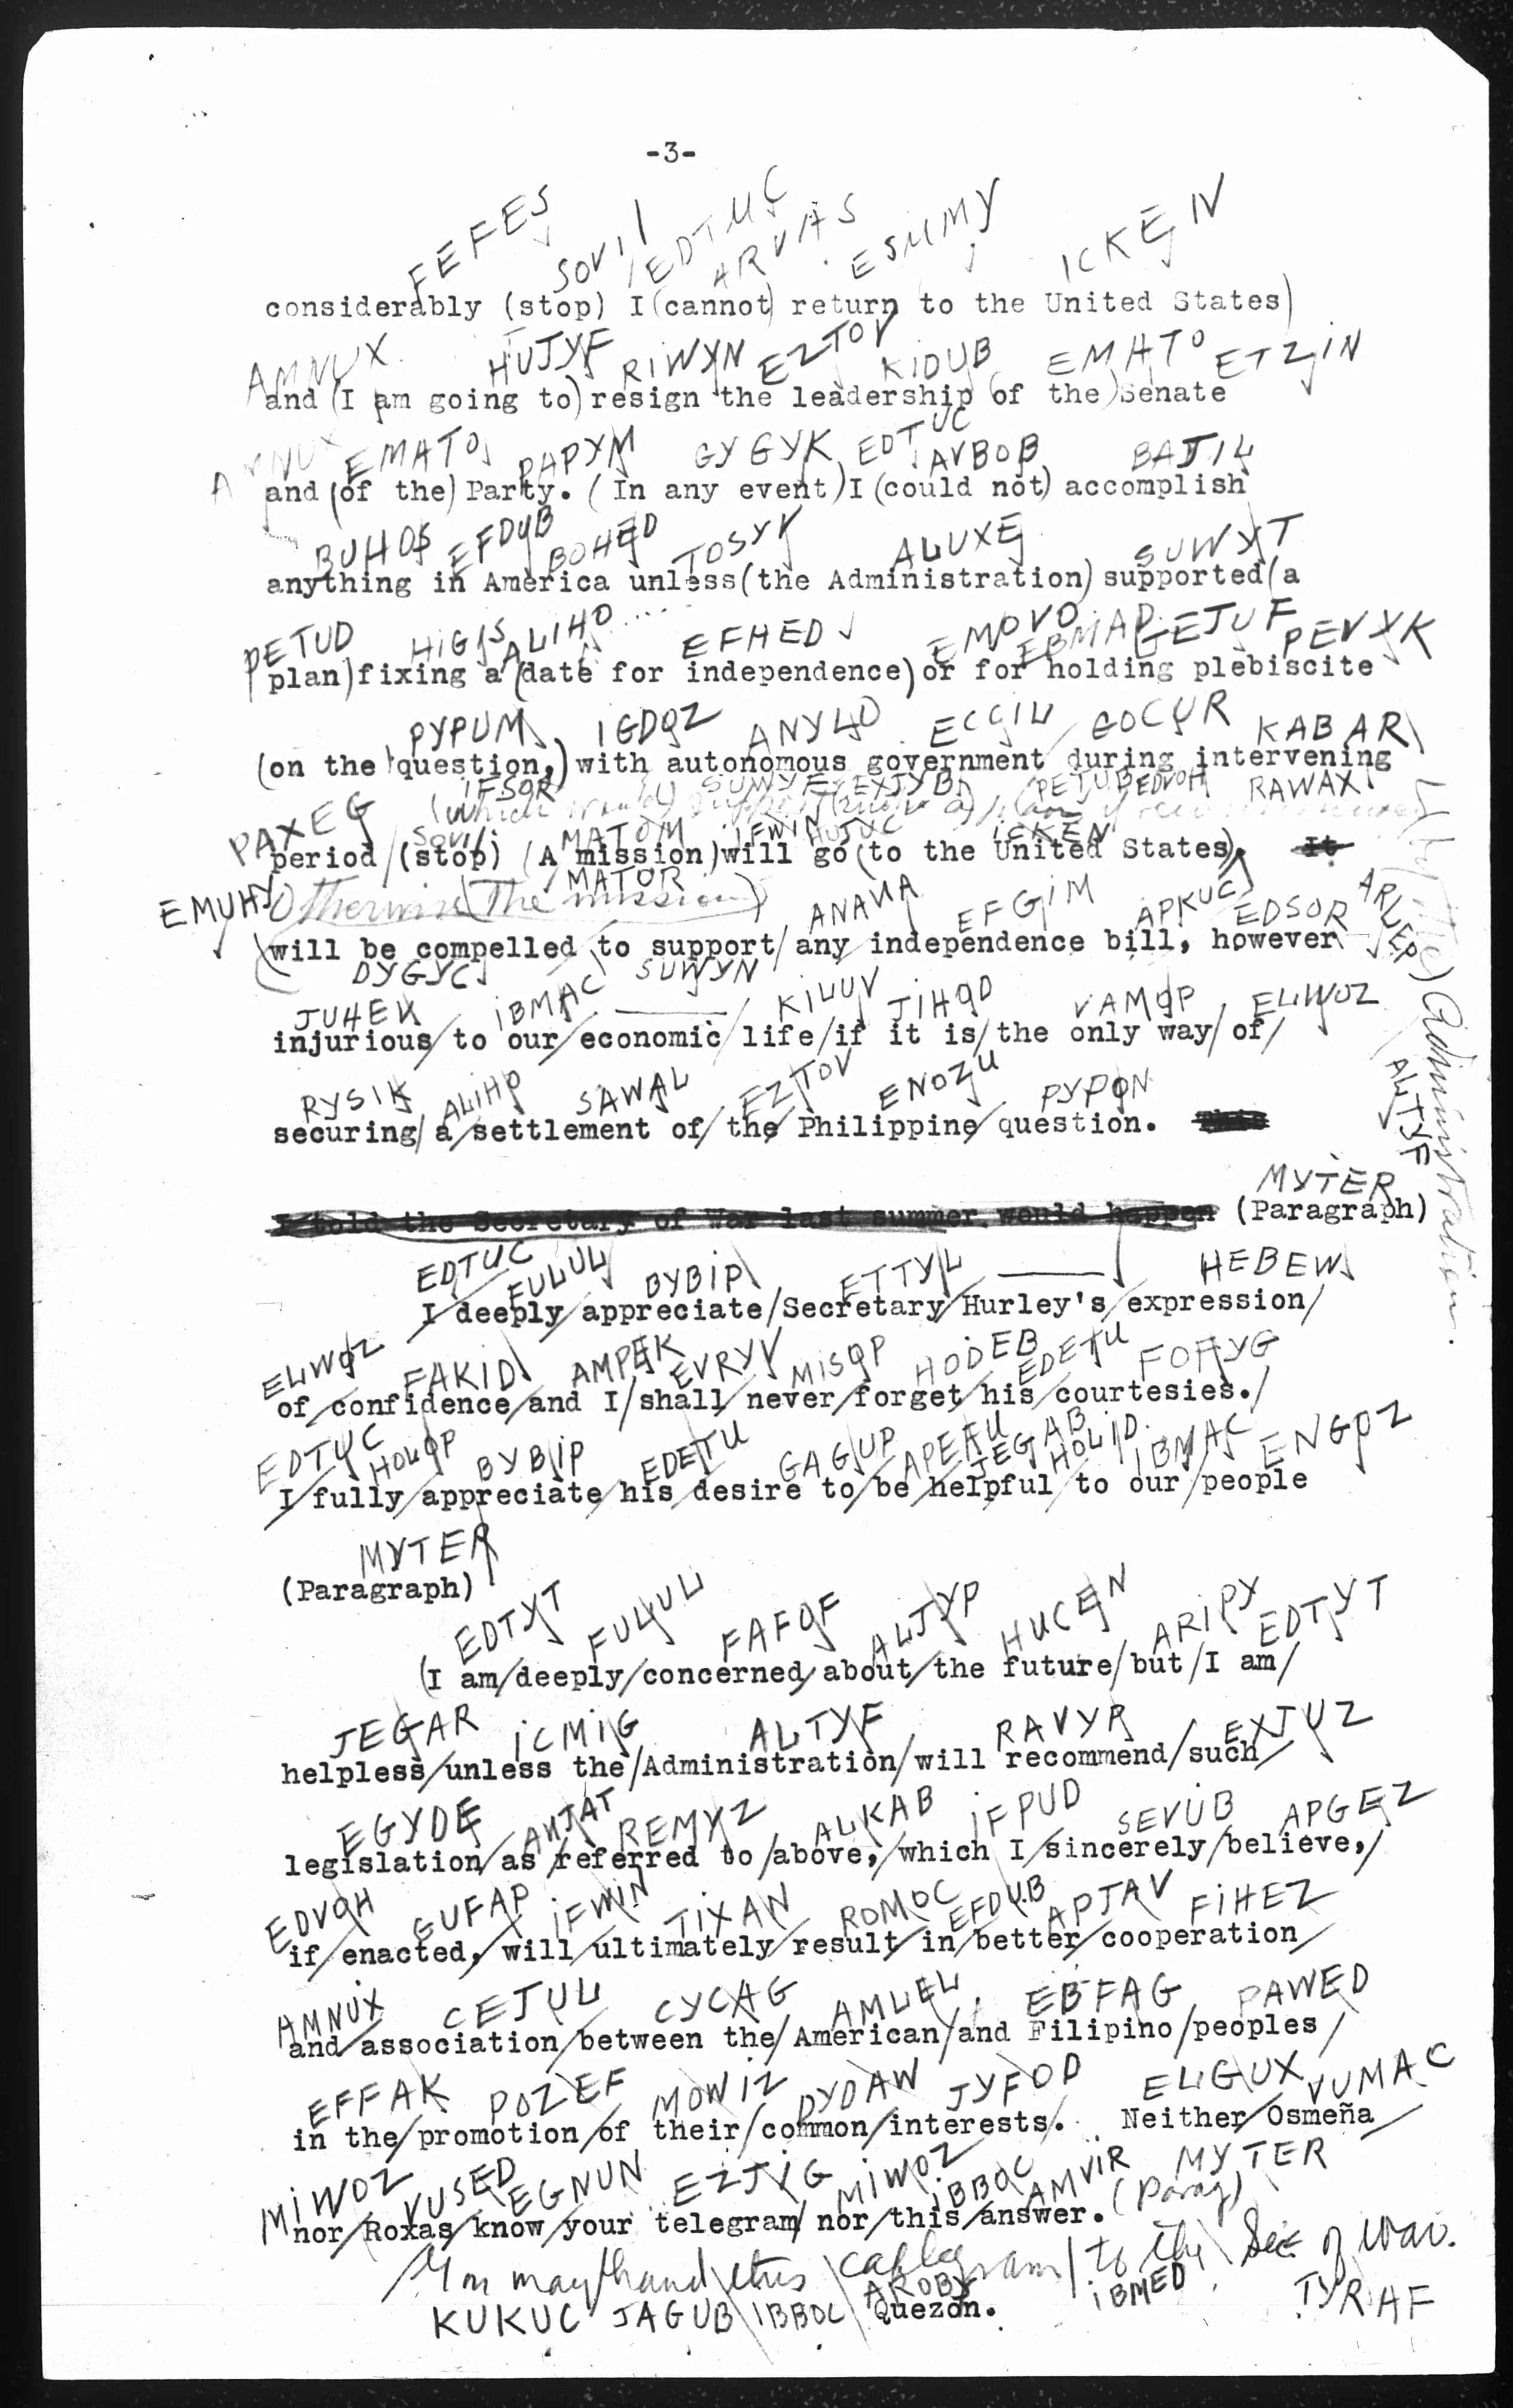 -3-
FEFES SOVIL EDTUC ARVAS ESUMY ICKEN
considerably (stop) I (cannot) return to the United States)
AMNUX HUJYF RIWYN EZTOV KIDUB EMATO ETZIN
and (I am going to) resign the leadership (of the) Senate
EMATO PAPYM GYGYK EDTUC AVBOB BAJIL
and (of the) Party. (In any event) I (could not) accomplish
BUHOS EFDUB BOHED TOSYK ALUXE SUWYT
anything in America unless (the Administration) supported (a
PETUD HIGIS ALIHO EFHED EMOVO EBMAP GEJUF PEVYK
plan) fixing a (date for independence) or for holding plebiscite
PYPUM IGDOZ ANYLO ECGIL GOCUR KABAR
(on the question,) with autonomous government during intervening
IFSOR SUWYF EXJYB PETUB EDVOH RAWAX
PAXEG SOVIL MATOM IFWIN HUJUC ICKEN
period (stop) (A mission) will go (to the United States)
MATOR
EMUHY Otherwise (The mission) ANAVA EFGIM APKUC EDSOR ARUEP
(will be compelled to support any independence bill, however
DYGYC SUWYN
JUHEK IBMAC KILUV JIHOD VAMOP ELWOZ
injurious to our economic life if it is the only way of
RYSIK ALIHO SAWAL EZTOV ENOZU PYPON
securing a settlement of the Philippine question.
ALTYF
Administration.
MYTER
I told the Secretary of War last summer would happen (Paragraph)
EDTUC FULUL BYBIP ETTYL HEBEW
I deeply appreciate Secretary Hurley's expression
ELWOZ FAKID AMPEK EVRYV MISOP HODEB EDETU FOFYG
of confidence and I shall never forget his courtesies.
EDTUC HOLOP BYBIP EDETU GAGUP APEAU JEGAB HOLID IBMAC ENGOZ
I fully appreciate his desire to be helpful to our people
MYTER
(Paragraph)
EDTYT FULUL FAFOF ALJYP HUCEN ARIPY EDTYT
(I am deeply concerned about the future but I am
JEGAR ICMIG ALTYF RAVYR EXJUZ
helpless unless the Administration will recommend such
EGYDE ANJAT REMYZ ALKAB IFPUD SEVUB APGEZ
legislation as referred to above, which I sincerely believe,
EDVOH GUFAP IFWIN TIXAN ROMOC EFDUB APJAV FIHEZ
if enacted, will ultimately result in better cooperation
AMNUX CEJUL CYCAG AMLEL EBFAG PAWED
and association between the American and Filipino peoples
EFFAK POZEF MOWIZ DYDAW JYFOD ELGUX VUMAC
in the promotion of their common interests. Neither Osmeña
MIWOZ VUSED EGNUN EZJYG MIWOZ IBBOC AMVIR MYTER
nor Roxas know your telegram nor this answer. (Parag)
You may hand this cablegram to the Sec of War.
KUKUC JAGUB IBBOC AROBY IBMED TYRAF
Quezon.